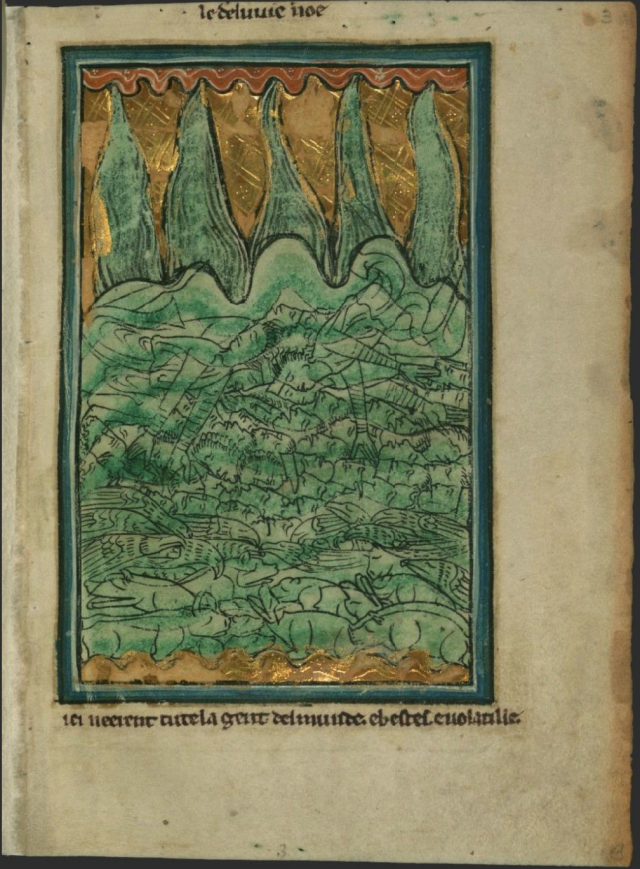 le deluuie noe
ici neerent tute la gent del munde. e bestes. e uolatilie.
3